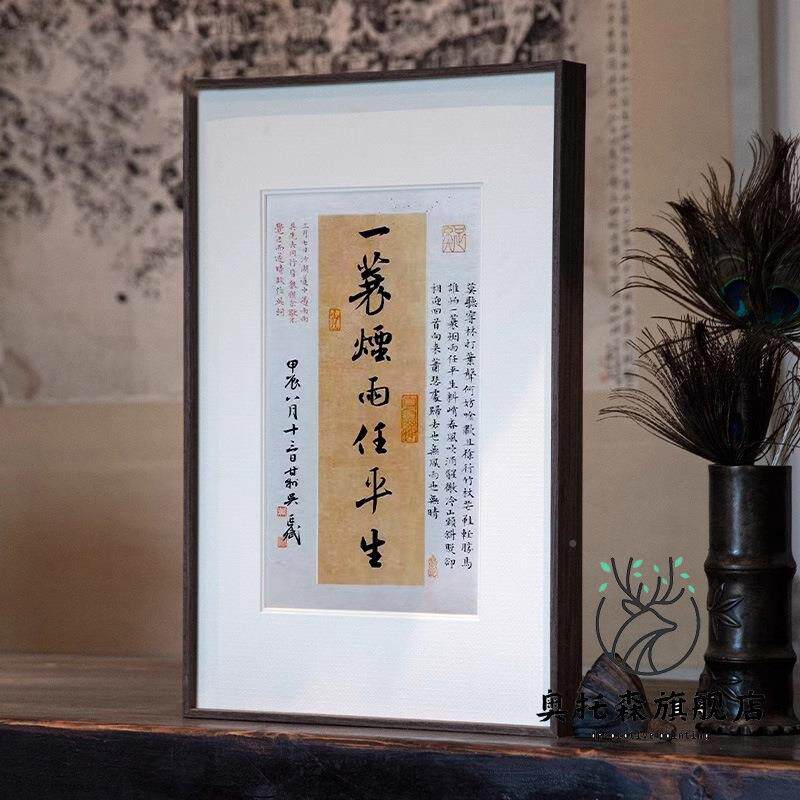 莫聽穿林打葉聲何妨吟嘯且徐行竹杖芒鞋輕勝馬
誰怕一蓑烟雨任平生料峭春風吹酒醒微冷山頭斜照卻
相迎回首向來蕭瑟處歸去也無風雨也無晴
一蓑煙雨任平生
三月七日沙湖道中遇雨雨
具先去同行皆狼狽余獨不
覺已而遂晴故作此詞
甲辰八月十三日甘州吳
奥托森旗舰店